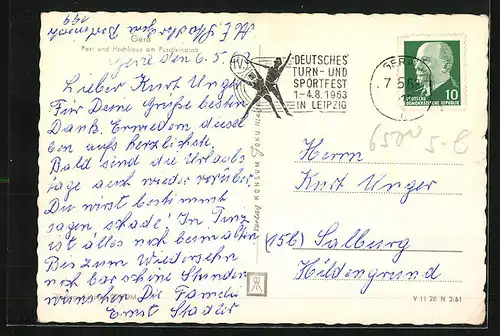 Abs. E. Stadler Gera Postfach 199
Gera
Post und Hochhaus am Puschkinplatz
Gera den 6.5.63
Lieber Kurt Unger
Für Deine Grüße besten
Dank. Erwidern diesel
ben aufs herzlichste.
Bald sind die Urlaubs
tage auch wieder vorüber.
Du wirst bestimmt
sagen, schade! In
ist alles noch beim alten
Bis zum Wiedersehn
noch ein paar schöne Stunden
wünschen Dir Familie
Ernst Stadler
Verlag KONSUM FOKU
DEUTSCHES
TURN- UND
SPORTFEST
1.-4.8.1963
IN LEIPZIG
GERA
7.5.63
10
DEUTSCHE
DEMOKRATISCHE REPUBLIK
6500
Herrn
Kurt Unger
(15b) Salburg
Hildengrund
V 11 28 N 2/61